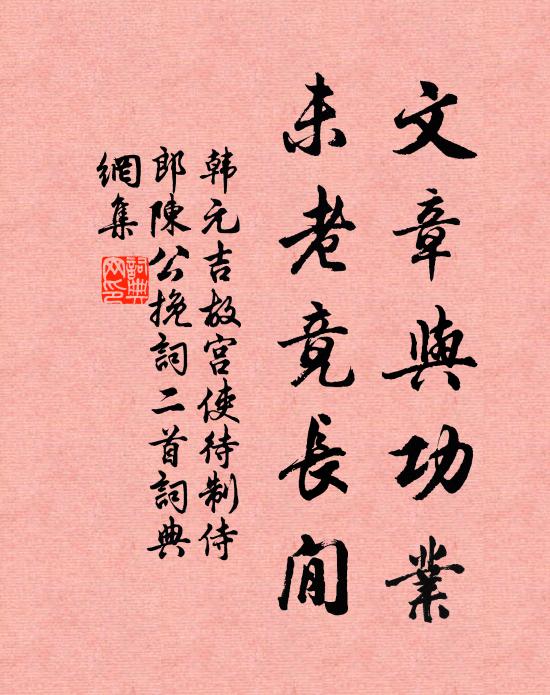 文章與功業
未老竟長閒
韩元吉故宮使待制侍
郎陳公挽詞二首詞典
網集
詞典
网印